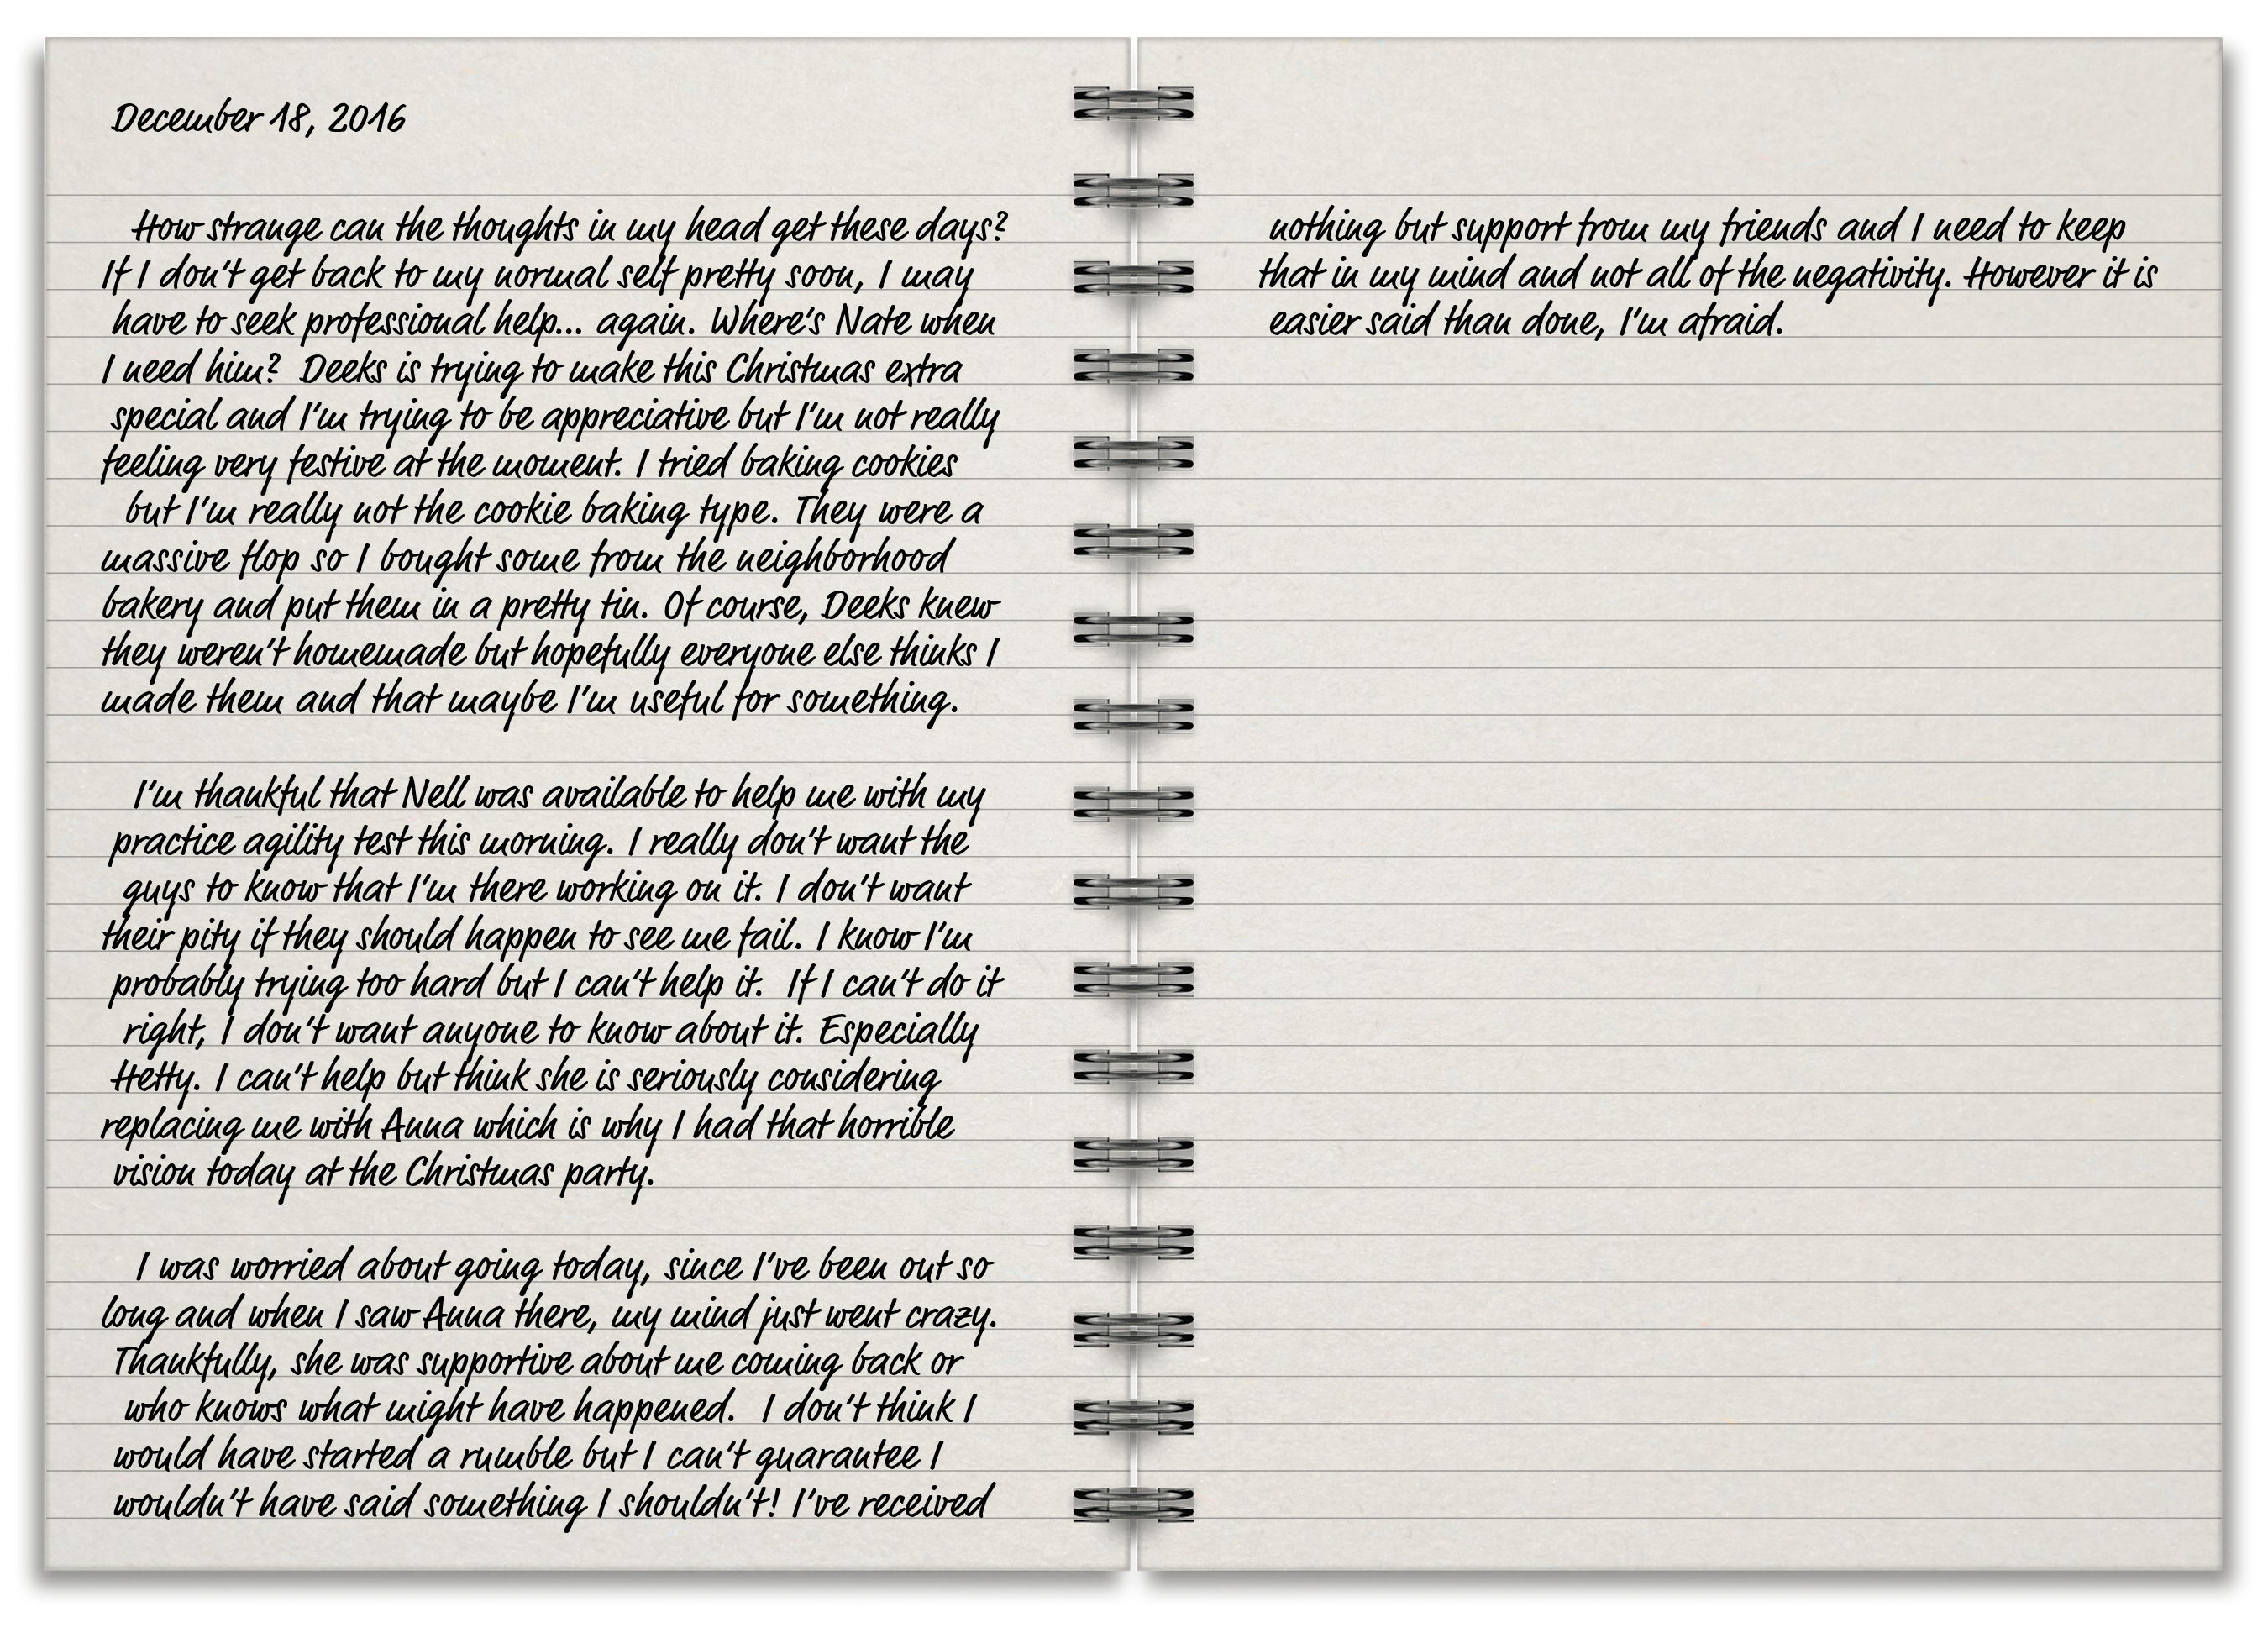 December 18, 2016
How strange can the thoughts in my head get these days?
If I don't get back to my normal self pretty soon, I may
have to seek professional help... again. Where's Nate when
I need him? Deeks is trying to make this Christmas extra
special and I'm trying to be appreciative but I'm not really
feeling very festive at the moment. I tried baking cookies
but I'm really not the cookie baking type. They were a
massive flop so I bought some from the neighborhood
bakery and put them in a pretty tin. Of course, Deeks knew
they weren't homemade but hopefully everyone else thinks I
made them and that maybe I'm useful for something.
I'm thankful that Nell was available to help me with my
practice agility test this morning. I really don't want the
guys to know that I'm there working on it. I don't want
their pity if they should happen to see me fail. I know I'm
probably trying too hard but I can't help it. If I can't do it
right, I don't want anyone to know about it. Especially
Hetty. I can't help but think she is seriously considering
replacing me with Anna which is why I had that horrible
vision today at the Christmas party.
I was worried about going today, since I've been out so
long and when I saw Anna there, my mind just went crazy.
Thankfully, she was supportive about me coming back or
who knows what might have happened. I don't think I
would have started a rumble but I can't guarantee I
wouldn't have said something I shouldn't! I've received
nothing but support from my friends and I need to keep
that in my mind and not all of the negativity. However it is
easier said than done, I'm afraid.